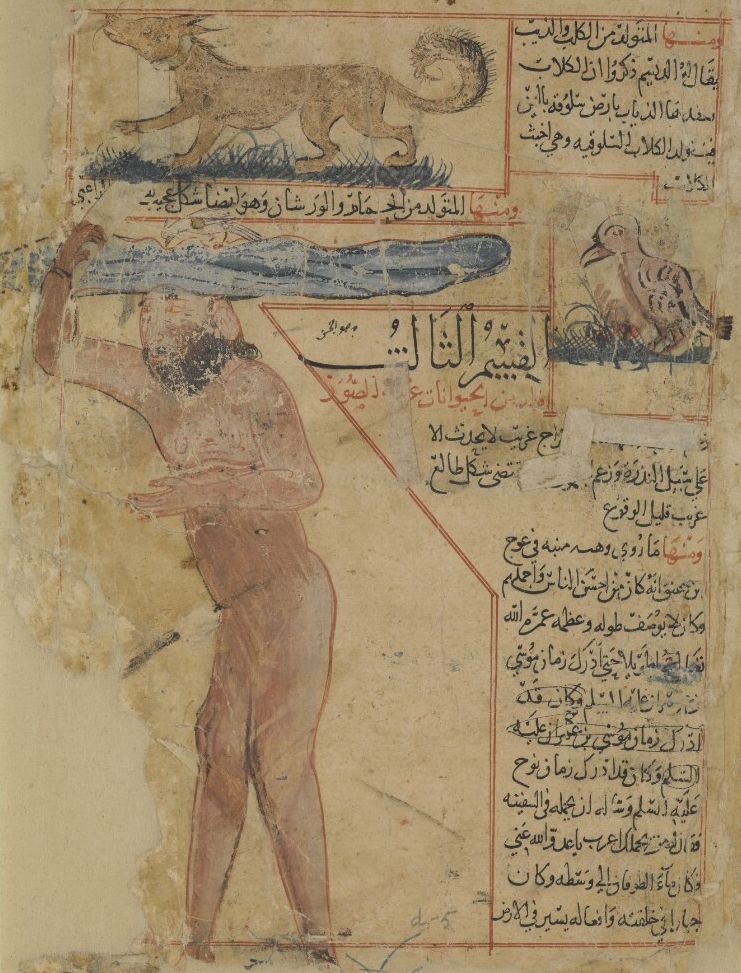 ومنها المتولد من الكلب والذيب
يقال له الديسم ذكروا ان الكلاب
تسفدها الذياب بارض سلوقه باليمن
فيتولد الكلاب السلوقيه وهي اخبث
الكلاب
ومنها المتولد من الحمام والورشان وهو ايضا شكل عجيب
القسم الثالث
من الحيوانات الصور
غريب لا يحدث الا
على سبيل الندرة وزعم شكل طالع
غريب قليل الوقوع
ومنها ما روى وهب بن منبه في عوج
بن عنق انه كان من احسن الناس واجملهم
وكان لا يوصف طوله وعظمه عمره الله
حتى ادرك زمان موسى
بن عمران عليه السلم وكان قد
ادرك زمان موسى بن عمران عليه
السلم وكان قد ادرك زمان نوح
عليه السلم وساله ان يحمله في السفينه
فقال من يحملك اعرب يا عدو الله عني
وكان ماء الطوفان الى وسطه وكان
جبارا في خلقته وافعاله يسير في الارض
d-5